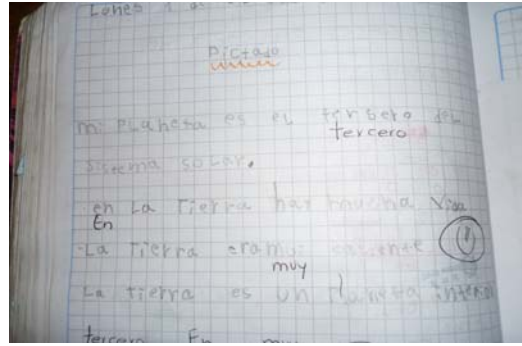 Lunes 1 de
Dictado
mi PLaneta es eL terbero deL
tercero
sistema soLar.
en La Tierra hay mucha vida
En
-La Tierra eramuy caliente
muy
La Tierra es un PLaneta
tercero En muy